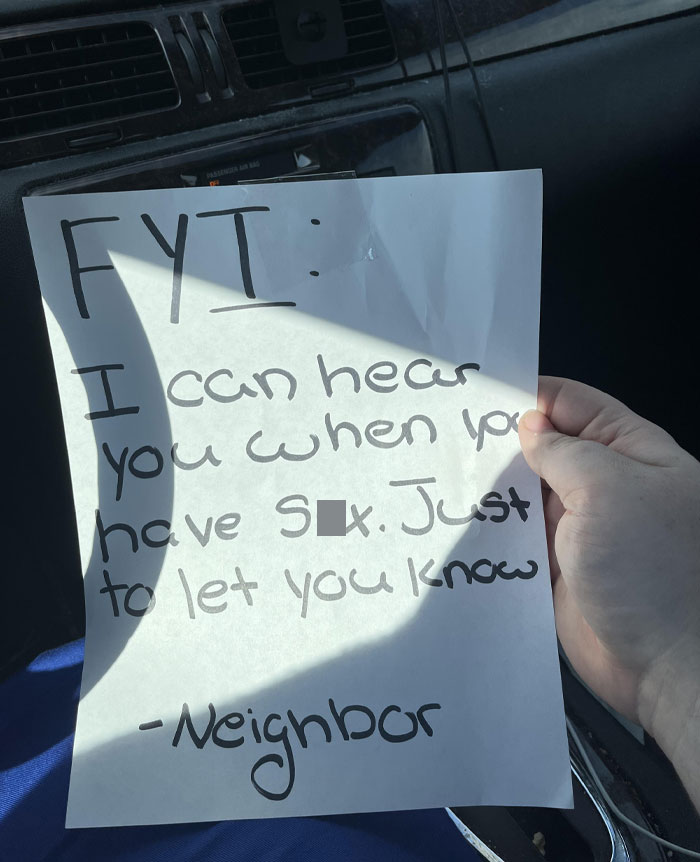 FYI:
I can hear
you when you
have S■x. Just
to let you know
-Neighbor
PASSENGER AIR BAG